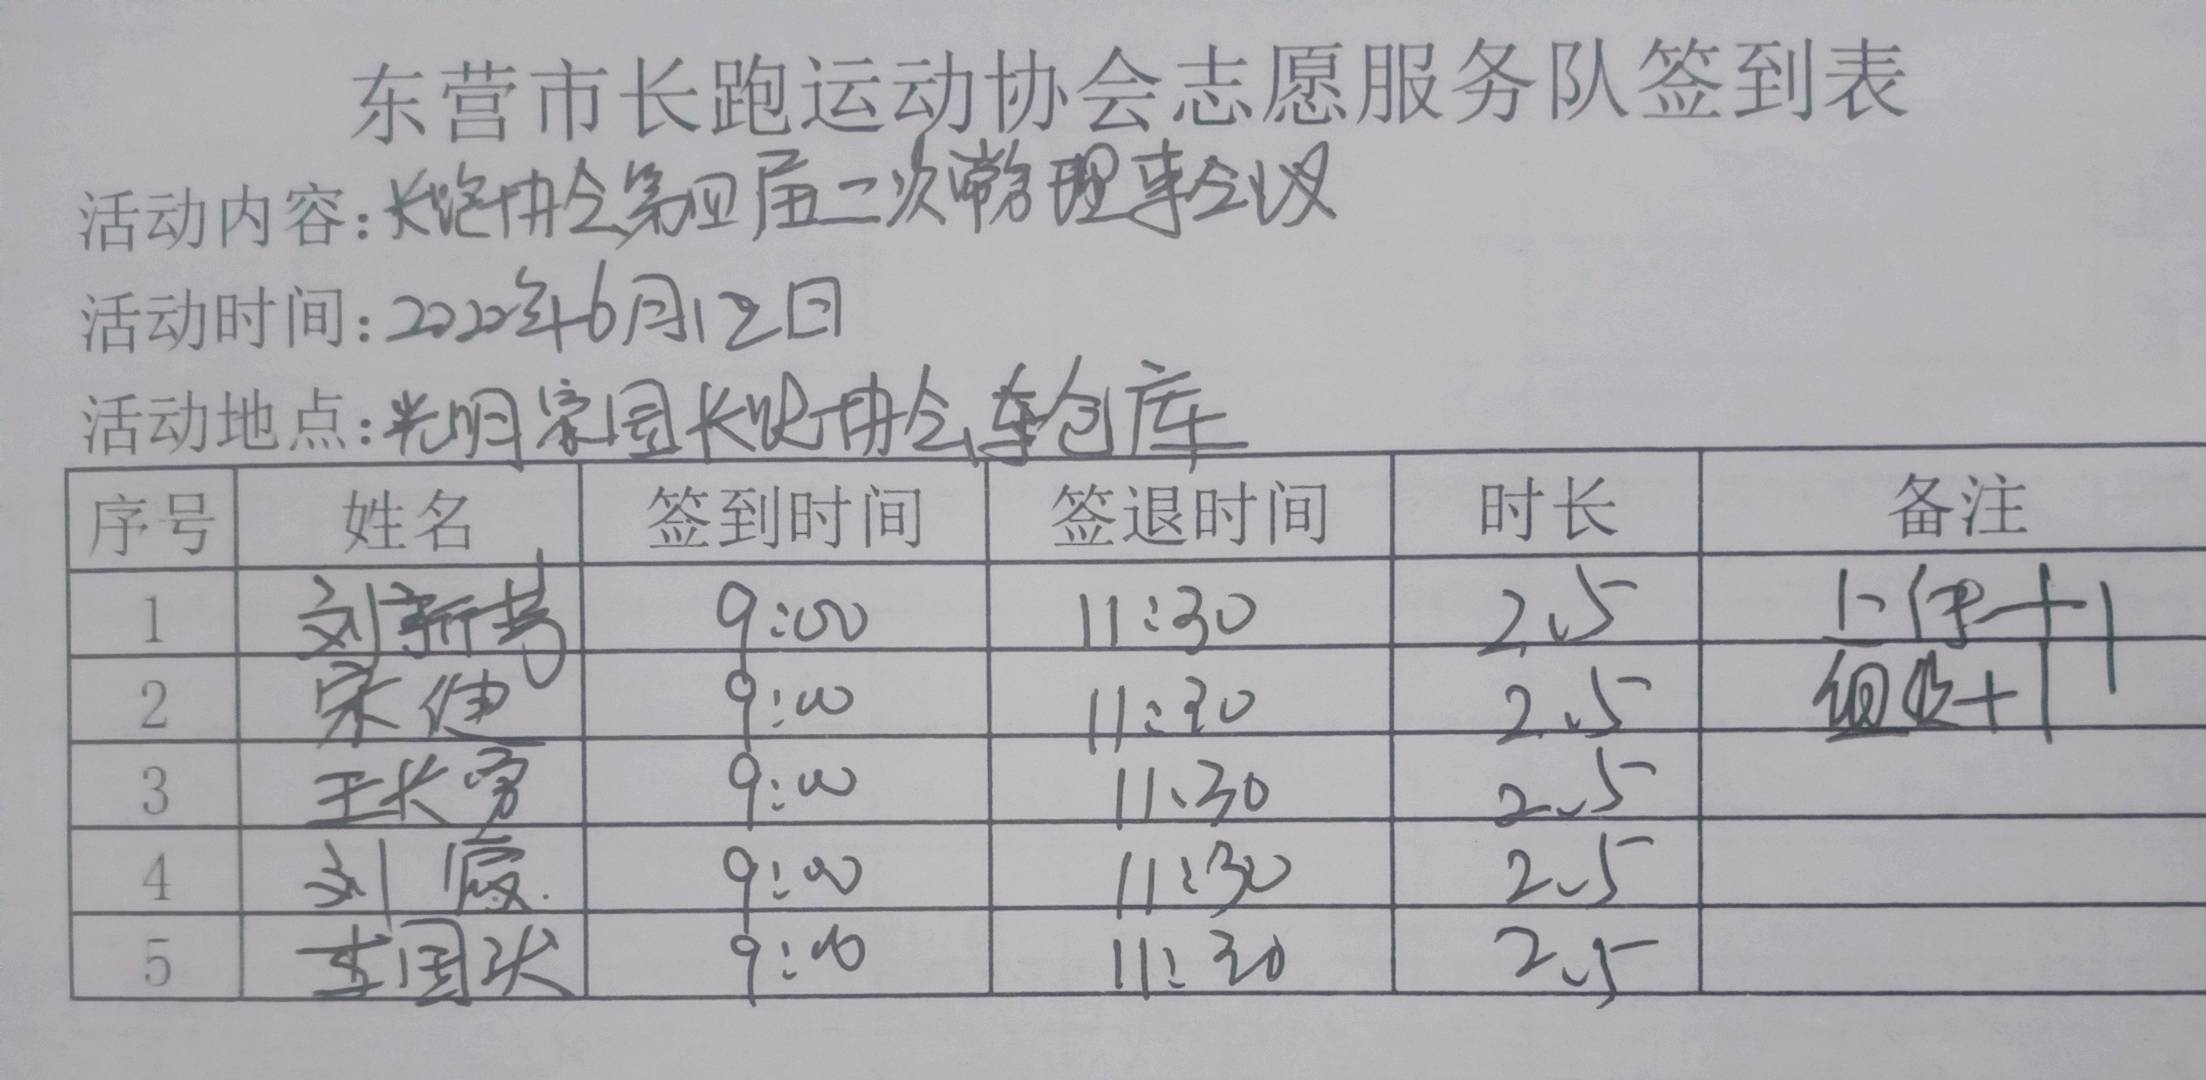 东营市长跑运动协会志愿服务队签到表
活动内容:长跑协会第四届二次常务理事会议
活动时间:2022年6月12日
活动地点:光明家园长跑协会车仓库
序号 姓名 签到时间 签退时间 时长 备注
1 刘新 9:00 11:30 2.5
2 宋 9:00 11:30 2.5 组织+1
3 王长勇 9:00 11:30 2.5
4 刘 9:00 11:30 2.5
5 李国庆 9:00 11:30 2.5